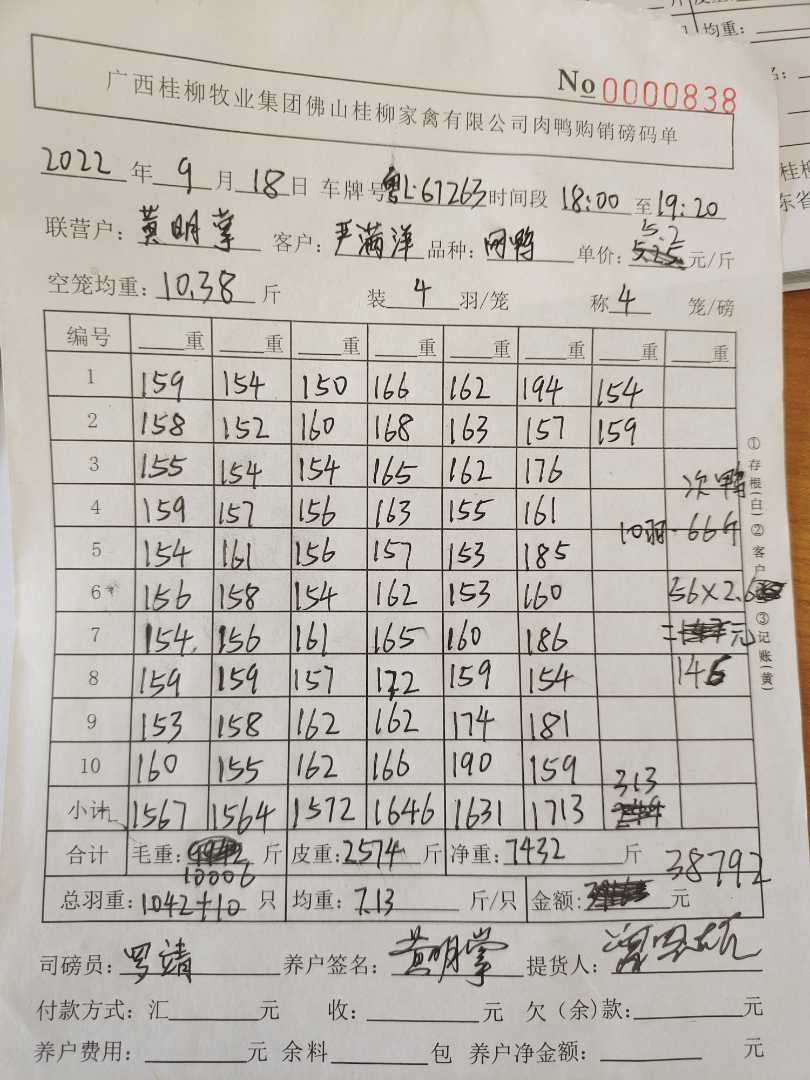 均重:
No 0000838
广西桂柳牧业集团佛山桂柳家禽有限公司肉鸭购销磅码单
2022年9月18日 车牌号粤L·67263时间段 18:00至19:20
5.2
联营户:黄明掌 客户:严满洋 品种:网鸭 单价: 元/斤
空笼均重:10.38斤 装4羽/笼 称4笼/磅
编号 重 重 重 重 重 重 重 重
1 159 154 150 166 162 194 154
2 158 152 160 168 163 157 159
3 155 154 154 165 162 176 次鸭
4 159 157 156 163 155 161 10羽·66斤
5 154 161 156 157 153 185
6 156 158 154 162 153 160 56×2.6
7 154 156 161 165 160 186 = 元
8 159 159 157 172 159 154 146
9 153 158 162 162 174 181
10 160 155 162 166 190 159
小计 1567 1564 1572 1646 1631 1713 313
合计 毛重:10006斤 皮重:2574斤 净重:7432斤
38792
总羽重:1042+10只 均重:7.13斤/只 金额: 元
①存根(白)②客户 ③记账(黄)
司磅员:罗靖 养户签名:黄明掌 提货人:
付款方式:汇 元 收: 元 欠(余)款: 元
养户费用: 元 余料 包 养户净金额: 元